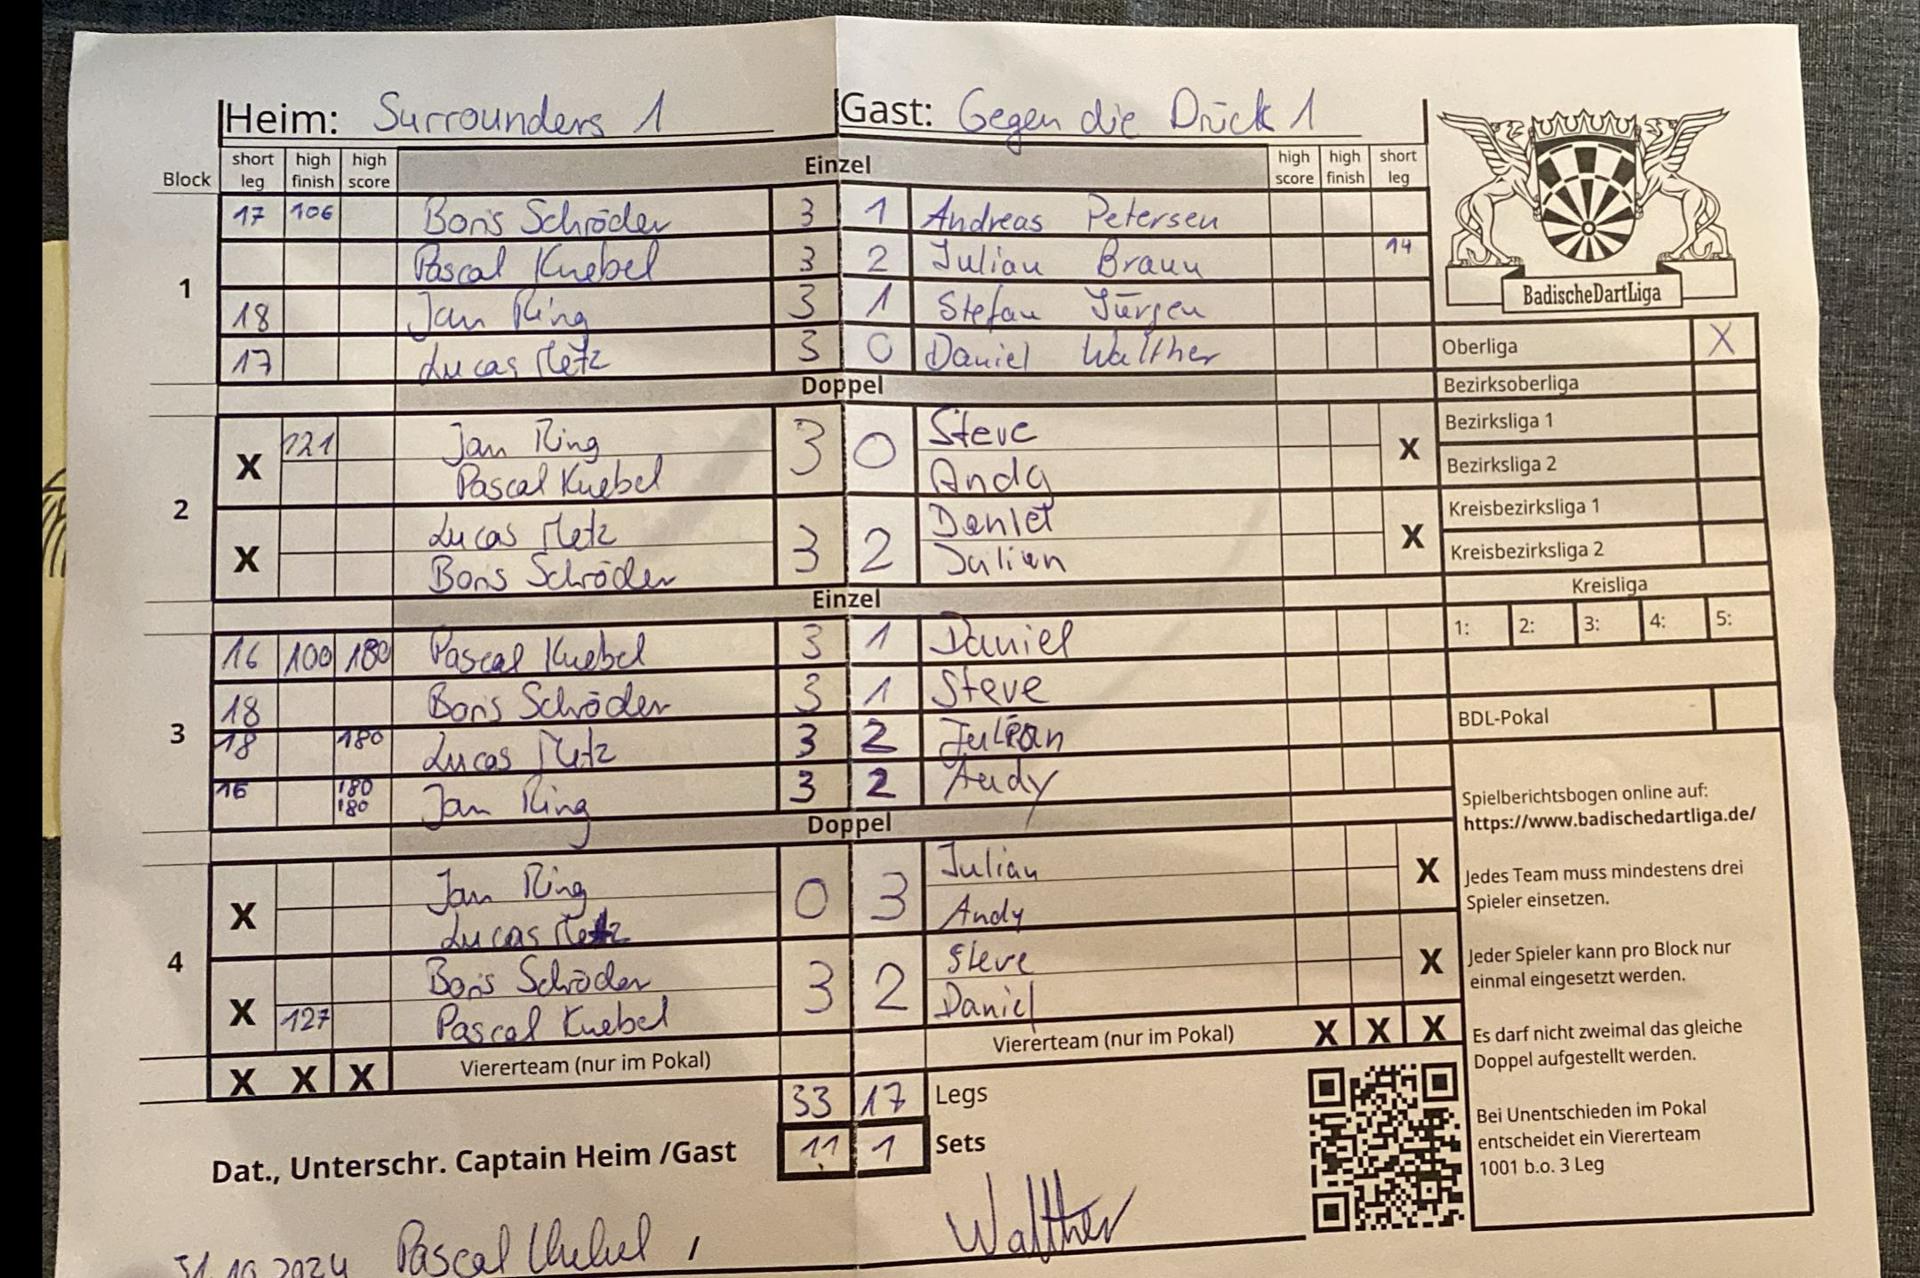 Heim: Surrounders 1 Gast: Gegen die Drück 1
Block short leg high finish high score Einzel high score high finish short leg
1
17 106 Boris Schröder 3 1 Andreas Petersen
Pascal Knebel 3 2 Julian Braun 14
18 Jan Ring 3 1 Stefan Jürgen
17 Lucas Metz 3 0 Daniel Walther
Doppel
2
X 121 Jan Ring 3 0 Steve X
Pascal Knebel Andy
X Lucas Metz 3 2 Daniel X
Boris Schröder Julian
Einzel
3
16 100 180 Pascal Knebel 3 1 Daniel
18 Boris Schröder 3 1 Steve
18 180 Lucas Metz 3 2 Julian
16 180 180 Jan Ring 3 2 Andy
Doppel
4
X Jan Ring 0 3 Julian X
Lucas Metz Andy
X Boris Schröder 3 2 Steve X
127 Pascal Knebel Daniel
X X X Viererteam (nur im Pokal) Viererteam (nur im Pokal) X X X
33 17 Legs
11 1 Sets
Dat., Unterschr. Captain Heim /Gast
31.10.2024 Pascal Knebel / Walther
BadischeDartLiga
Oberliga X
Bezirksoberliga
Bezirksliga 1
Bezirksliga 2
Kreisbezirksliga 1
Kreisbezirksliga 2
Kreisliga
1: 2: 3: 4: 5:
BDL-Pokal
Spielberichtsbogen online auf:
https://www.badischedartliga.de/
Jedes Team muss mindestens drei
Spieler einsetzen.
Jeder Spieler kann pro Block nur
einmal eingesetzt werden.
Es darf nicht zweimal das gleiche
Doppel aufgestellt werden.
Bei Unentschieden im Pokal
entscheidet ein Viererteam
1001 b.o. 3 Leg